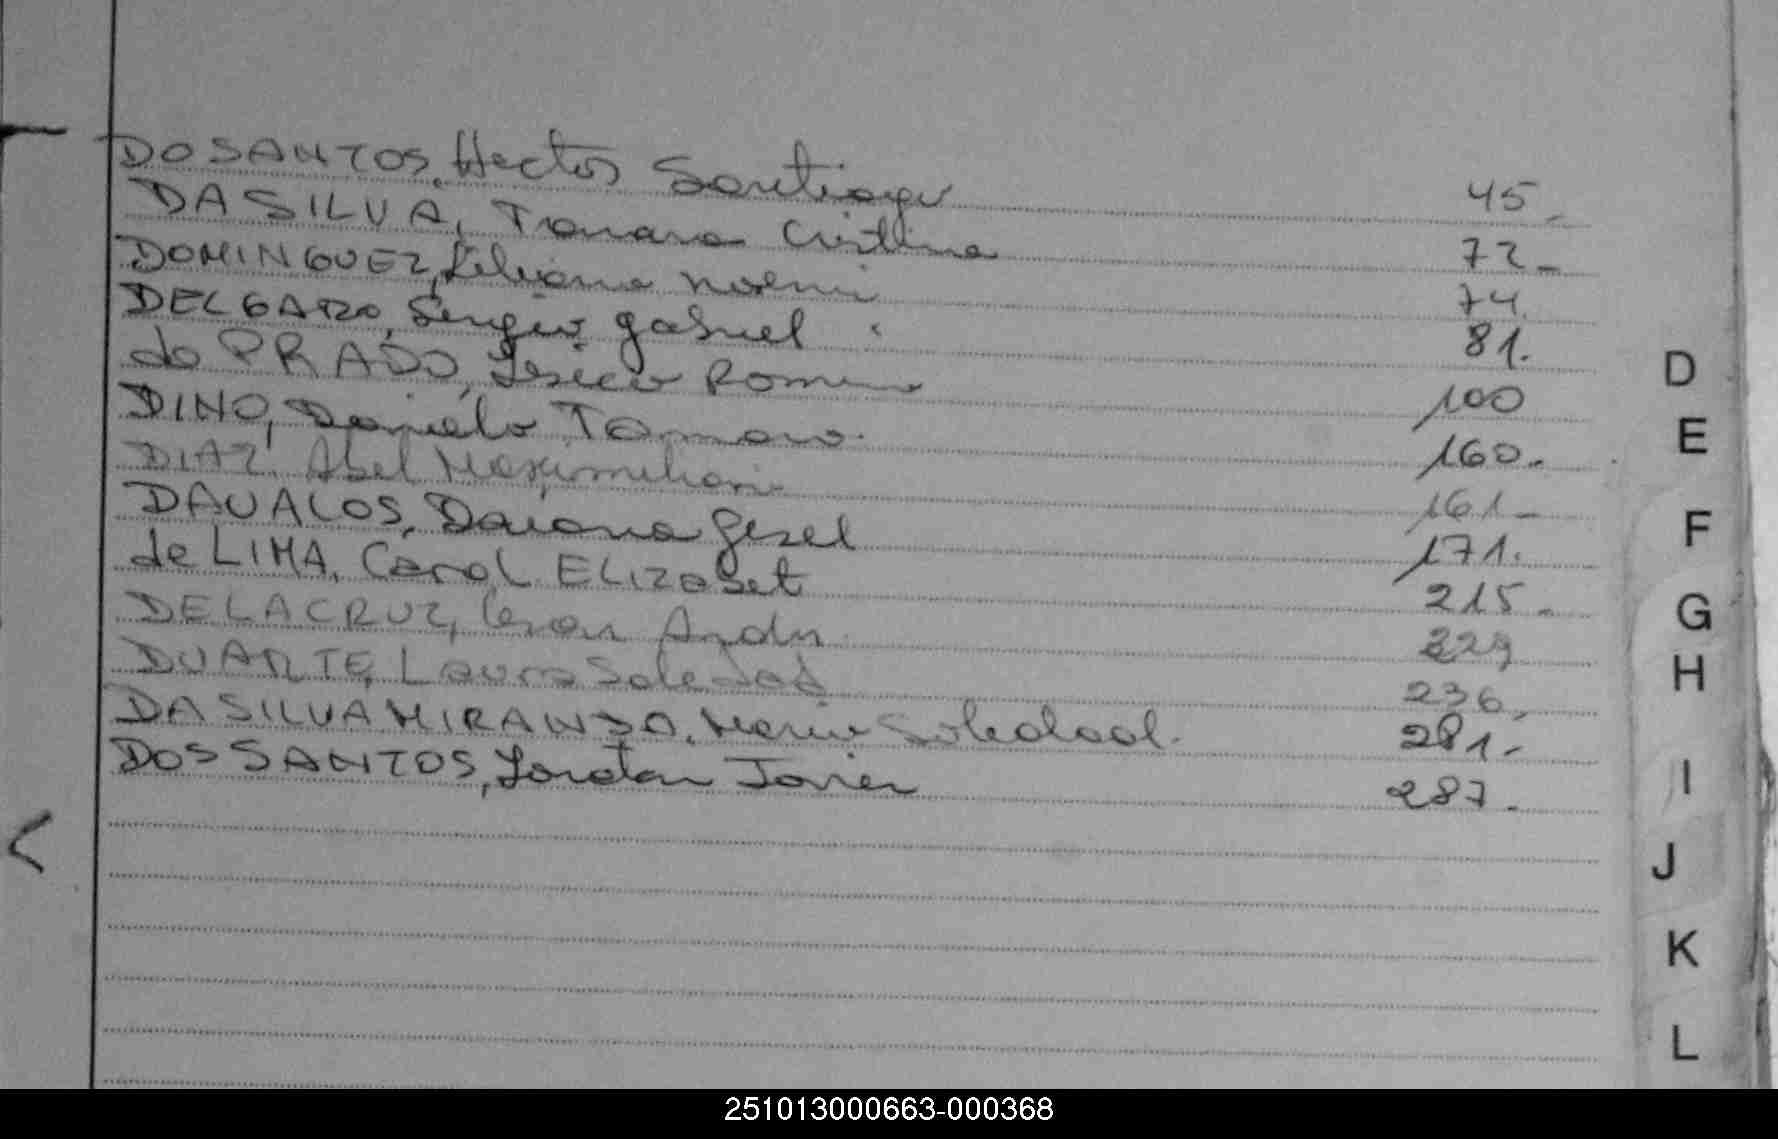 DOSANTOS, Hector Santiago 45-
DA SILVA, Tamara Cristina 72-
DOMINGUEZ, Liliana Noemi 74.
DELGADO, Sergio Gabriel 81.
do PRADO, Jesica Romina 100
DINO, Daniela Tamara. 160.
DIAZ, Abel Maximiliano 161-
DAVALOS, Daiana Gisel 171.
de LIMA, Carol ELIZabet 215-
DELACRUZ, Cesar Andres 229
DUARTE, Laura Soledad 236.
DA SILVA MIRANDA, Maria Soledad. 281-
DOS SANTOS, Jonatan Javier 287.
D
E
F
G
H
I
J
K
L
251013000663-000368